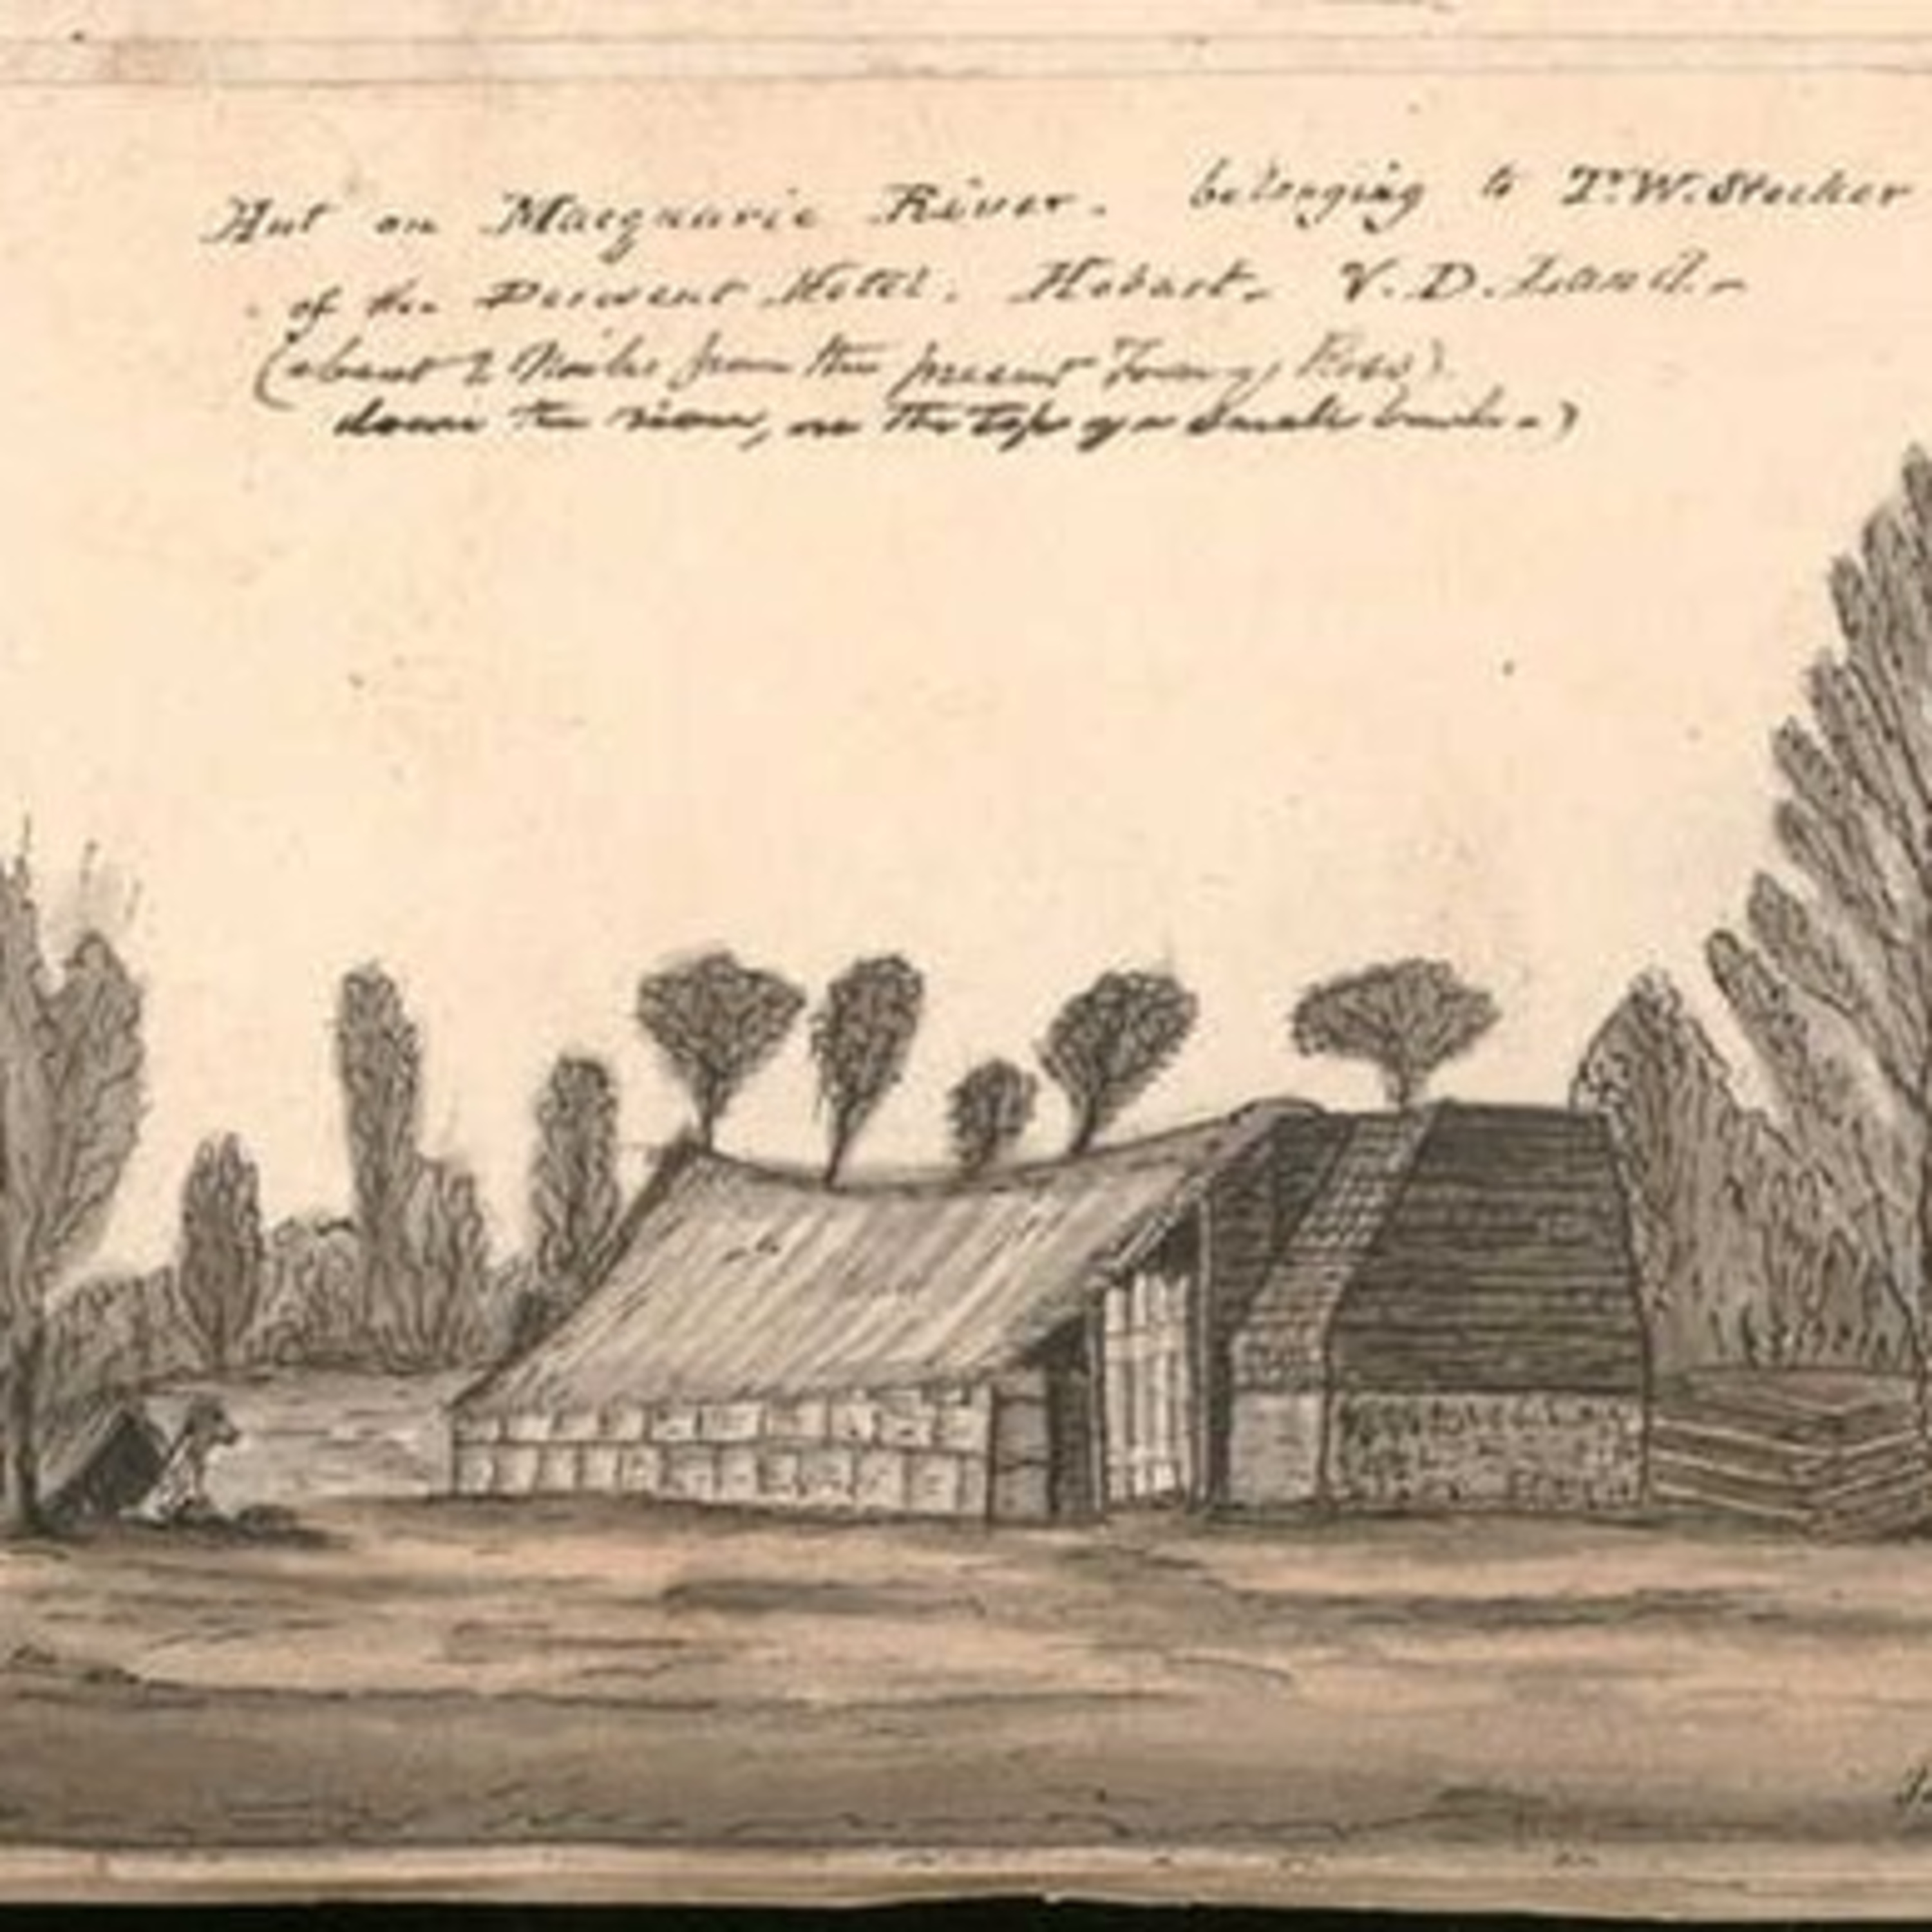 Hut on Macquarie River. belonging to T. W. Stocker
of the Derwent Hotel. Hobart. V. D. Land.-
(about 2 Miles from the present Town of Ross)
down the river, on the top of a small bank.)